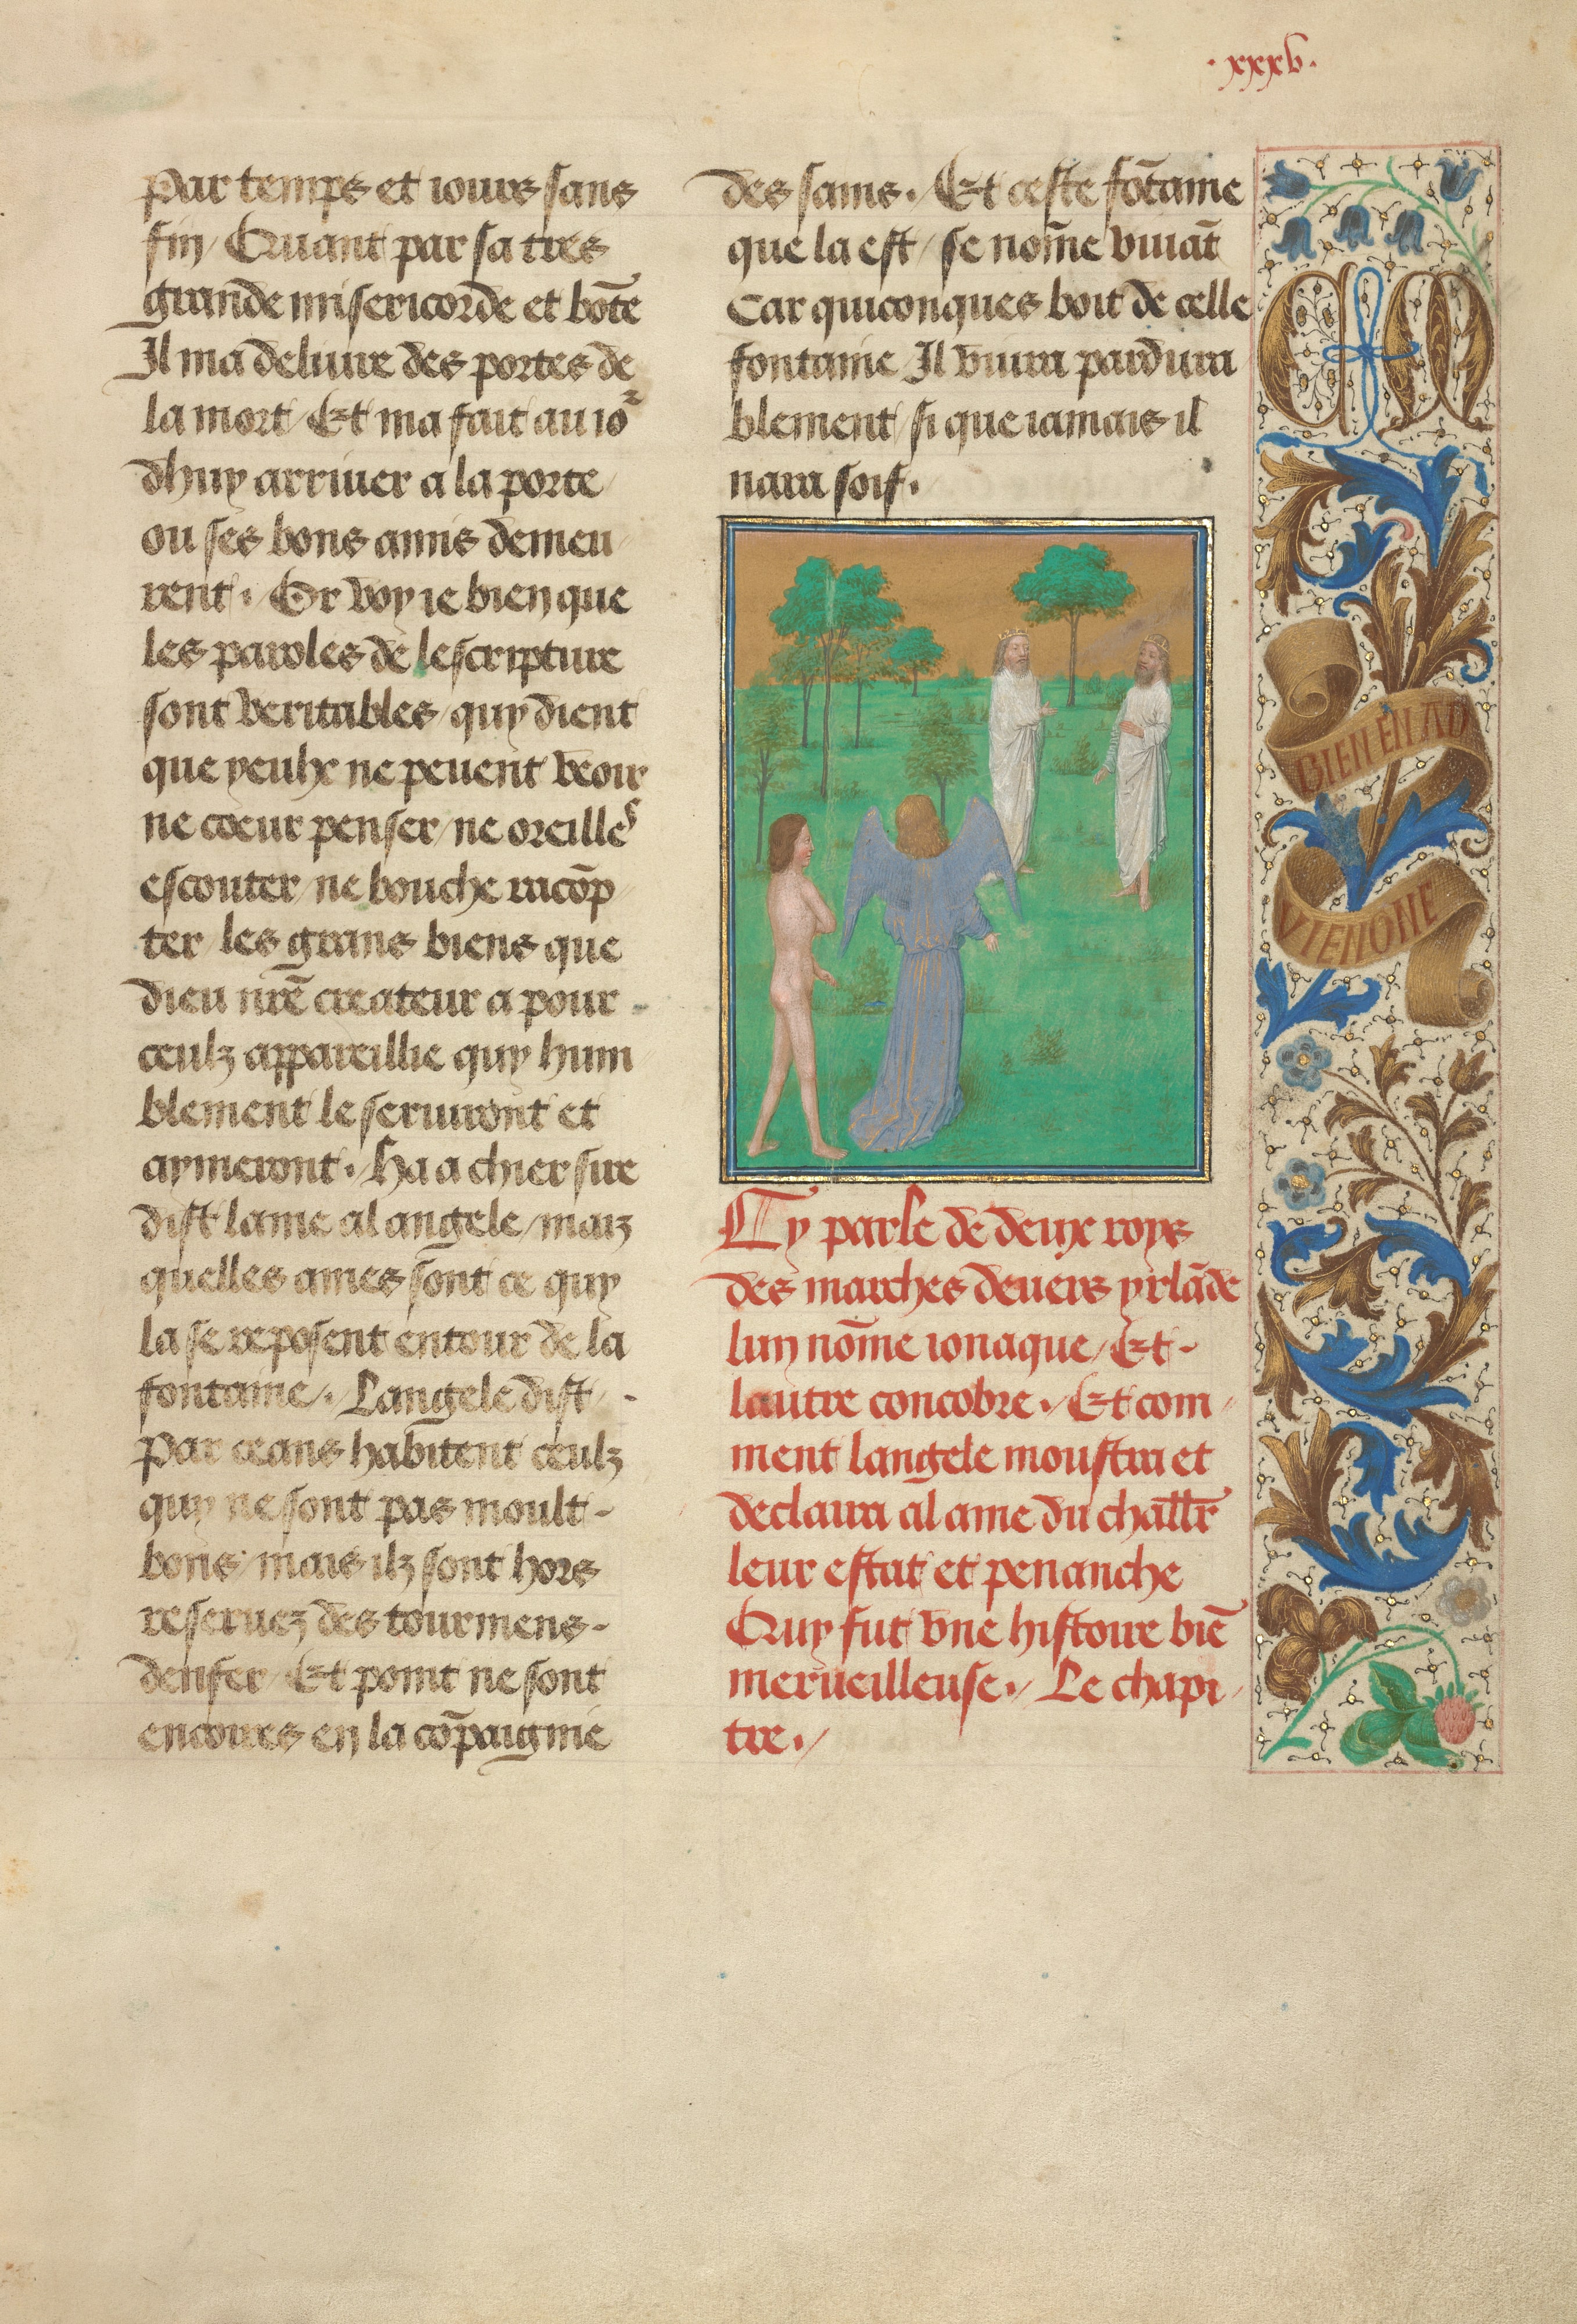 .xxxv.
par temps et iours sans
fin / Quant par sa tres
grande misericorde et bōte
Il ma deliure des portes de
la mort / Et ma fait au ioᷣ
dhuy arriuer a la porte
ou ses bons amis demeu
rent . Or voy ie bien que
les paroles de lescripture
sont veritables / quy dient
que yeulx ne peuent veoir
ne coeur penser / ne oreilles
escouter / ne bouche racōp
ter / les grans biens que
dieu nr̄e createur a pour -
ceulz appareillie quy hum
blement le seruiront et
aymeront . Ha a chier sire
dist lame al angele / maiz
quelles ames sont ce quy
la se reposent entour de la
fontaine . Langele dist -
Par ceans habitent ceulz
quy ne sont pas moult -
bons / mais ilz sont hors
reseruez des tourmens -
denfer / Et point ne sont
encores en la cōpaignie
des sains . Et ceste fōtaine
que la est / se nom̄e viuāt
Car quiconques boit de celle
fontaine Il viura pardura
blement / si que iamais il
nara soif .
Cy parle de deux roys
des marches deuers yrlāde
lun nōme ionaque / Et -
lautre concobre . Et com
ment langele moustra et
declaira al ame du chall̄r
leur estat et penanche
Quy fut vne histoire biē
merueilleuse . Le chapi
tre .
BIEN EN AD
VIENGNE